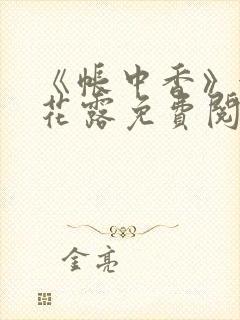 《帐中香》
花露免費閱
金亮